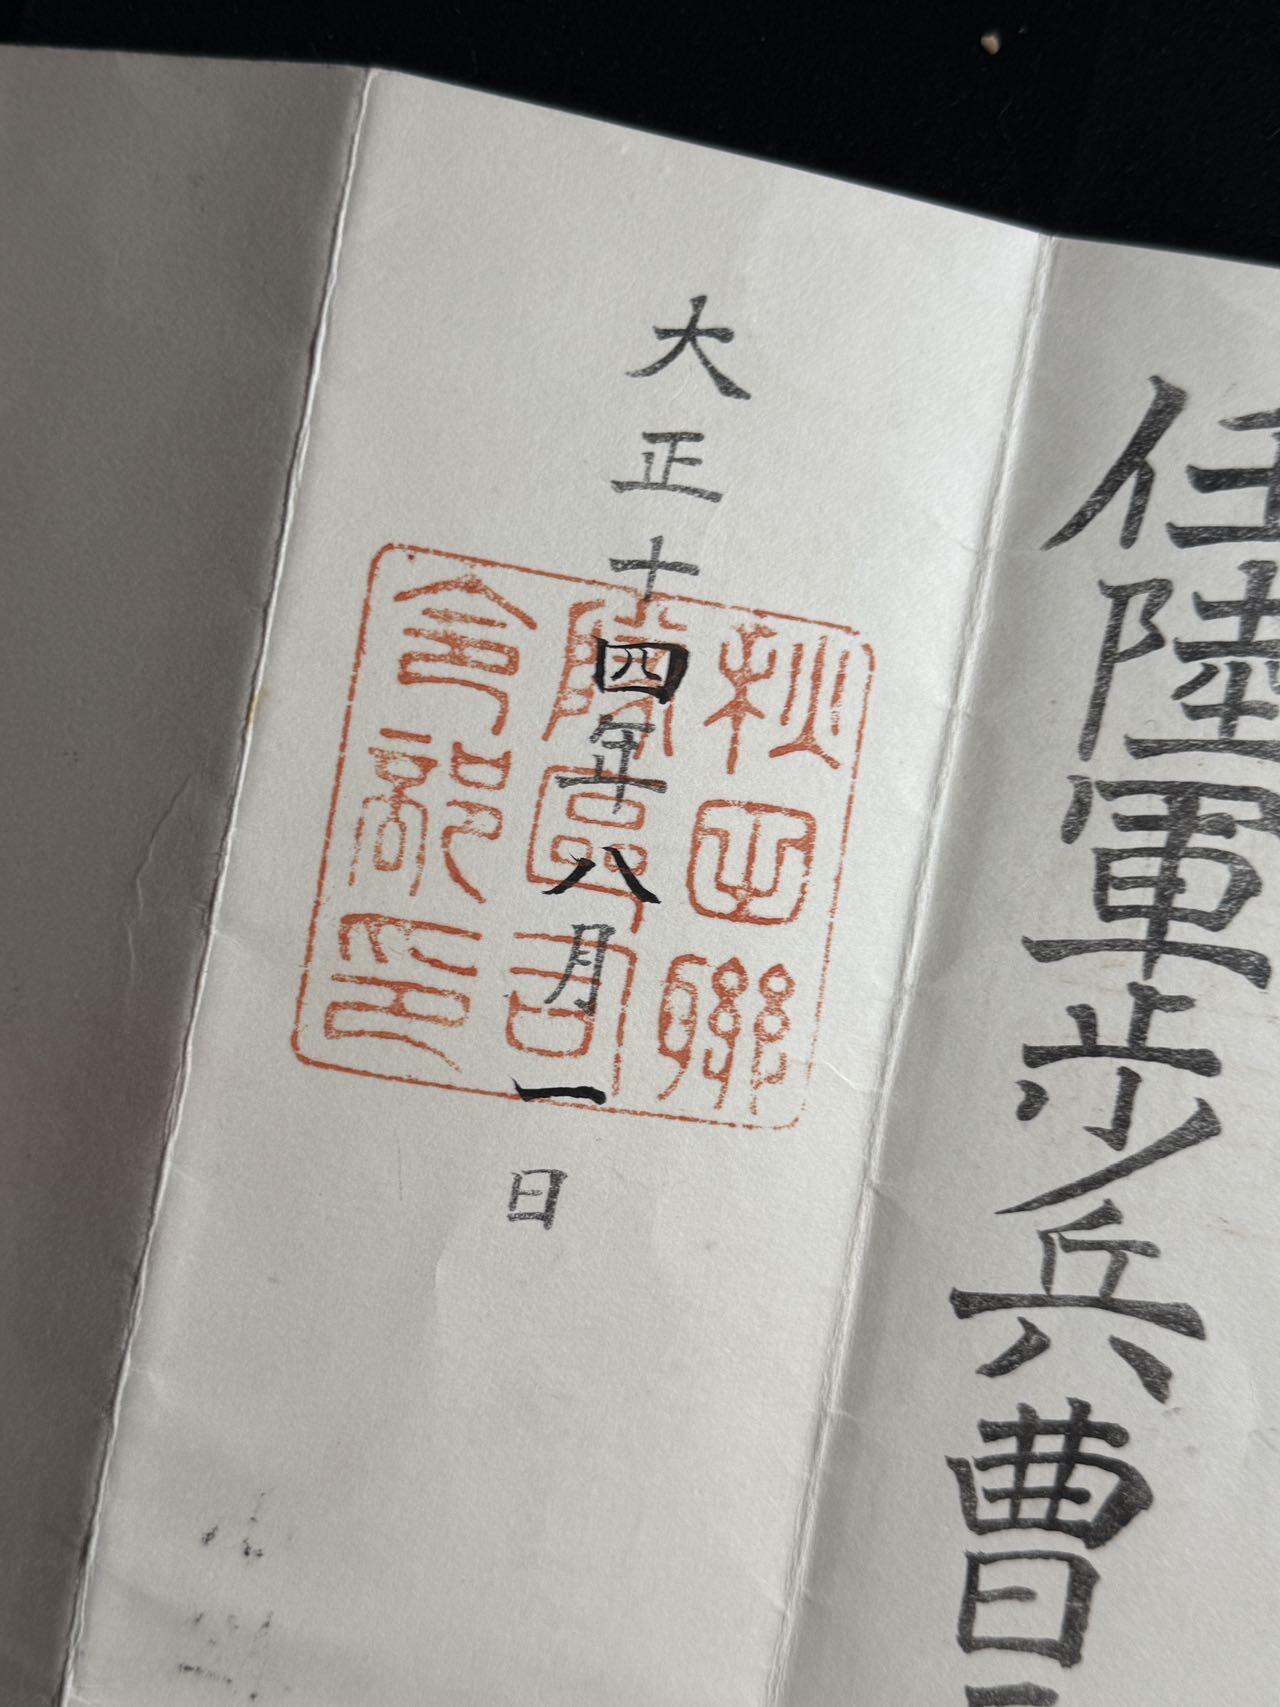 任陸軍歩兵曹
大正十四年八月一日
秋田聯
隊區司
令部印